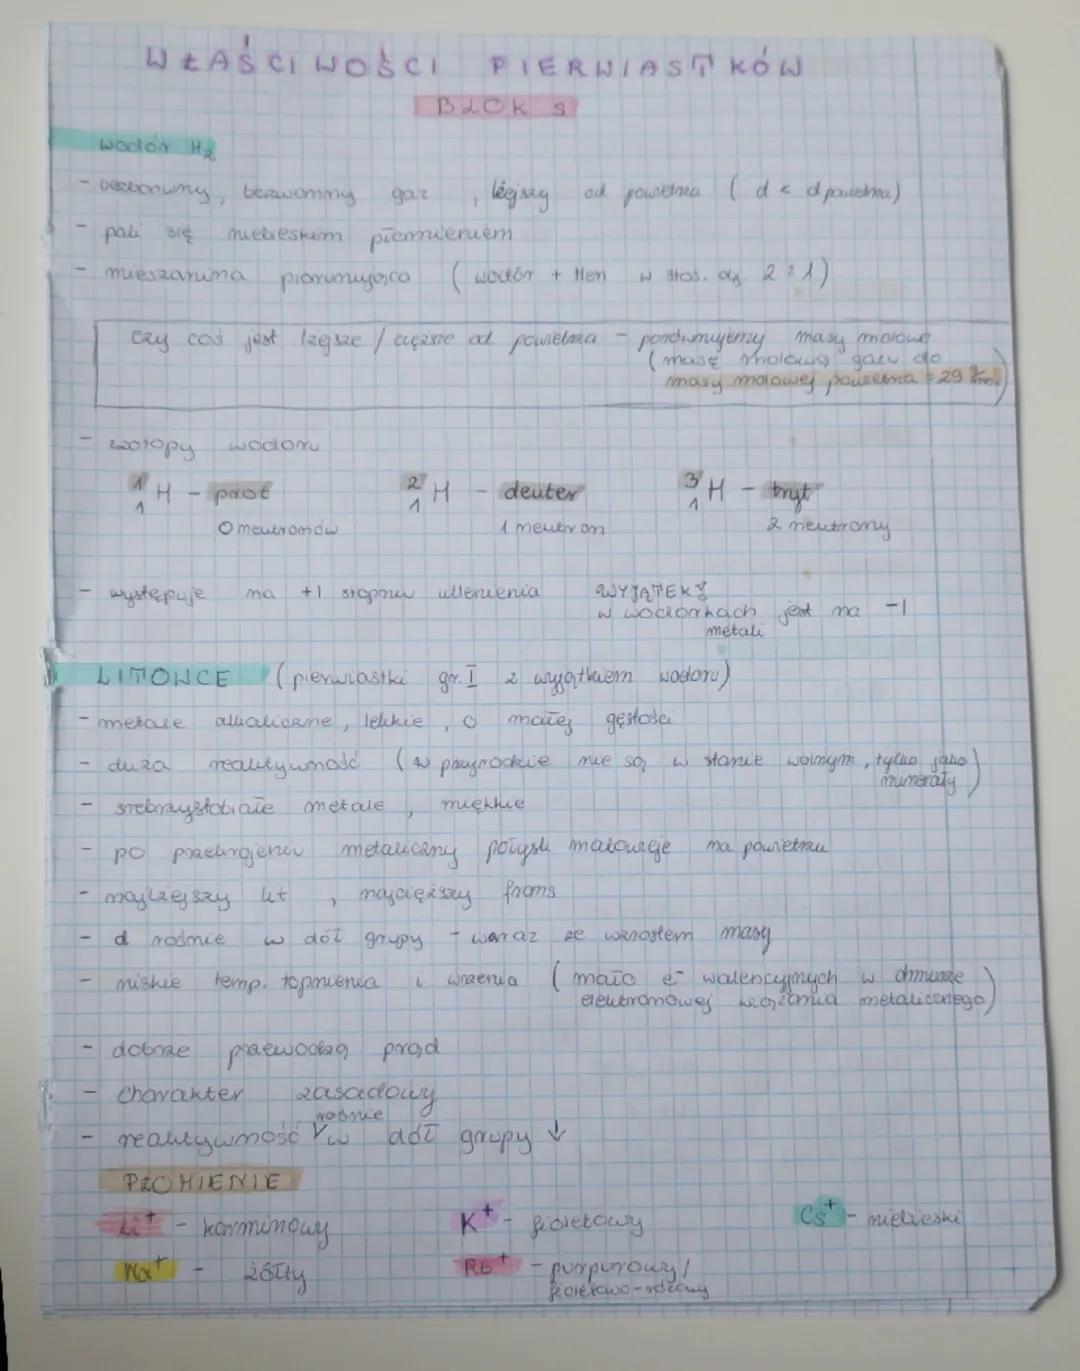 WŁAŚCIWOŚCI PIERWIASTKÓW
BLOK S
Wodór H2
- bezbarwny, bezwonny gaz, lżejszy od powietrza (d < d powietrza)
- pali się niebieskim płomieniem
- mieszanina piorunująca (wodór + tlen w stos. obj 2:1)
czy coś jest lżejsze / cięższe od powietrza - porównujemy masy molowe
(masę molową gazu do
masy molowej powietrza = 29 g/mol)
- izotopy wodoru
¹₁H - prot ²₁H - deuter ³₁H - tryt
0 neutronów 1 neutron 2 neutrony
- występuje na +1 stopniu utlenienia WYJĄTEK!
w wodorkach jest na -I
metali
LITOWCE (pierwiastki gr. I z wyjątkiem wodoru)
- metale alkaliczne, lekkie, o małej gęstości
- duża reaktywność (w przyrodzie nie są w stanie wolnym, tylko jako
minerały)
- srebrzystobiałe metale, miękkie
- po przekrojeniu metaliczny połysk matowieje na powietrzu
- najlżejszy lit, najcięższy frans
- d rośnie w dół grupy - wraz ze wzrostem masy
- niskie temp. topnienia i wrzenia (mało e⁻ walencyjnych w chmurze
elektronowej wiązania metalicznego)
- dobrze przewodzą prąd
- charakter zasadowy
rośnie
- reaktywność v w dół grupy ↓
PŁOMIENIE
Li⁺ - karminowy K⁺ - fioletowy Cs⁺ - niebieski
Na⁺ - żółty Rb⁺ - purpurowy /
fioletowo-różowy